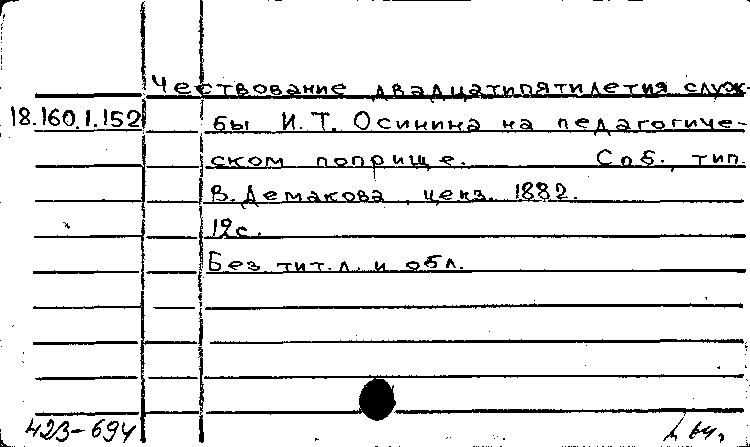 Чествование двадцатипятилетия служ-
18.160.1.152 бы И.Т. Осинина на педагогиче-
ском поприще. Спб., тип.
В. Демакова, ценз. 1882.
12с.
Без тит. л. и обл.
423-694